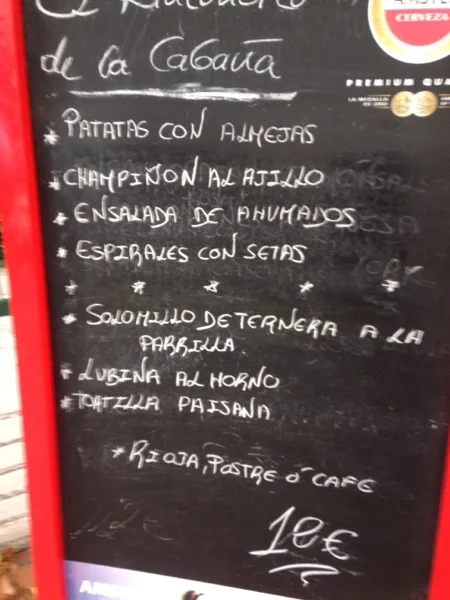 de la Cabaña
CERVEZA
PREMIUM QUA
LA MEDALLA
DE ORO
* PATATAS CON ALMEJAS
* CHAMPIÑON AL AJILLO
* ENSALADA DE AHUMADOS
* ESPIRALES CON SETAS
* * * * *
* SOLOMILLO DE TERNERA A LA
PARRILLA
* LUBINA AL HORNO
* TORTILLA PAISANA
* RIOJA, POSTRE ó CAFE
12€
AMS